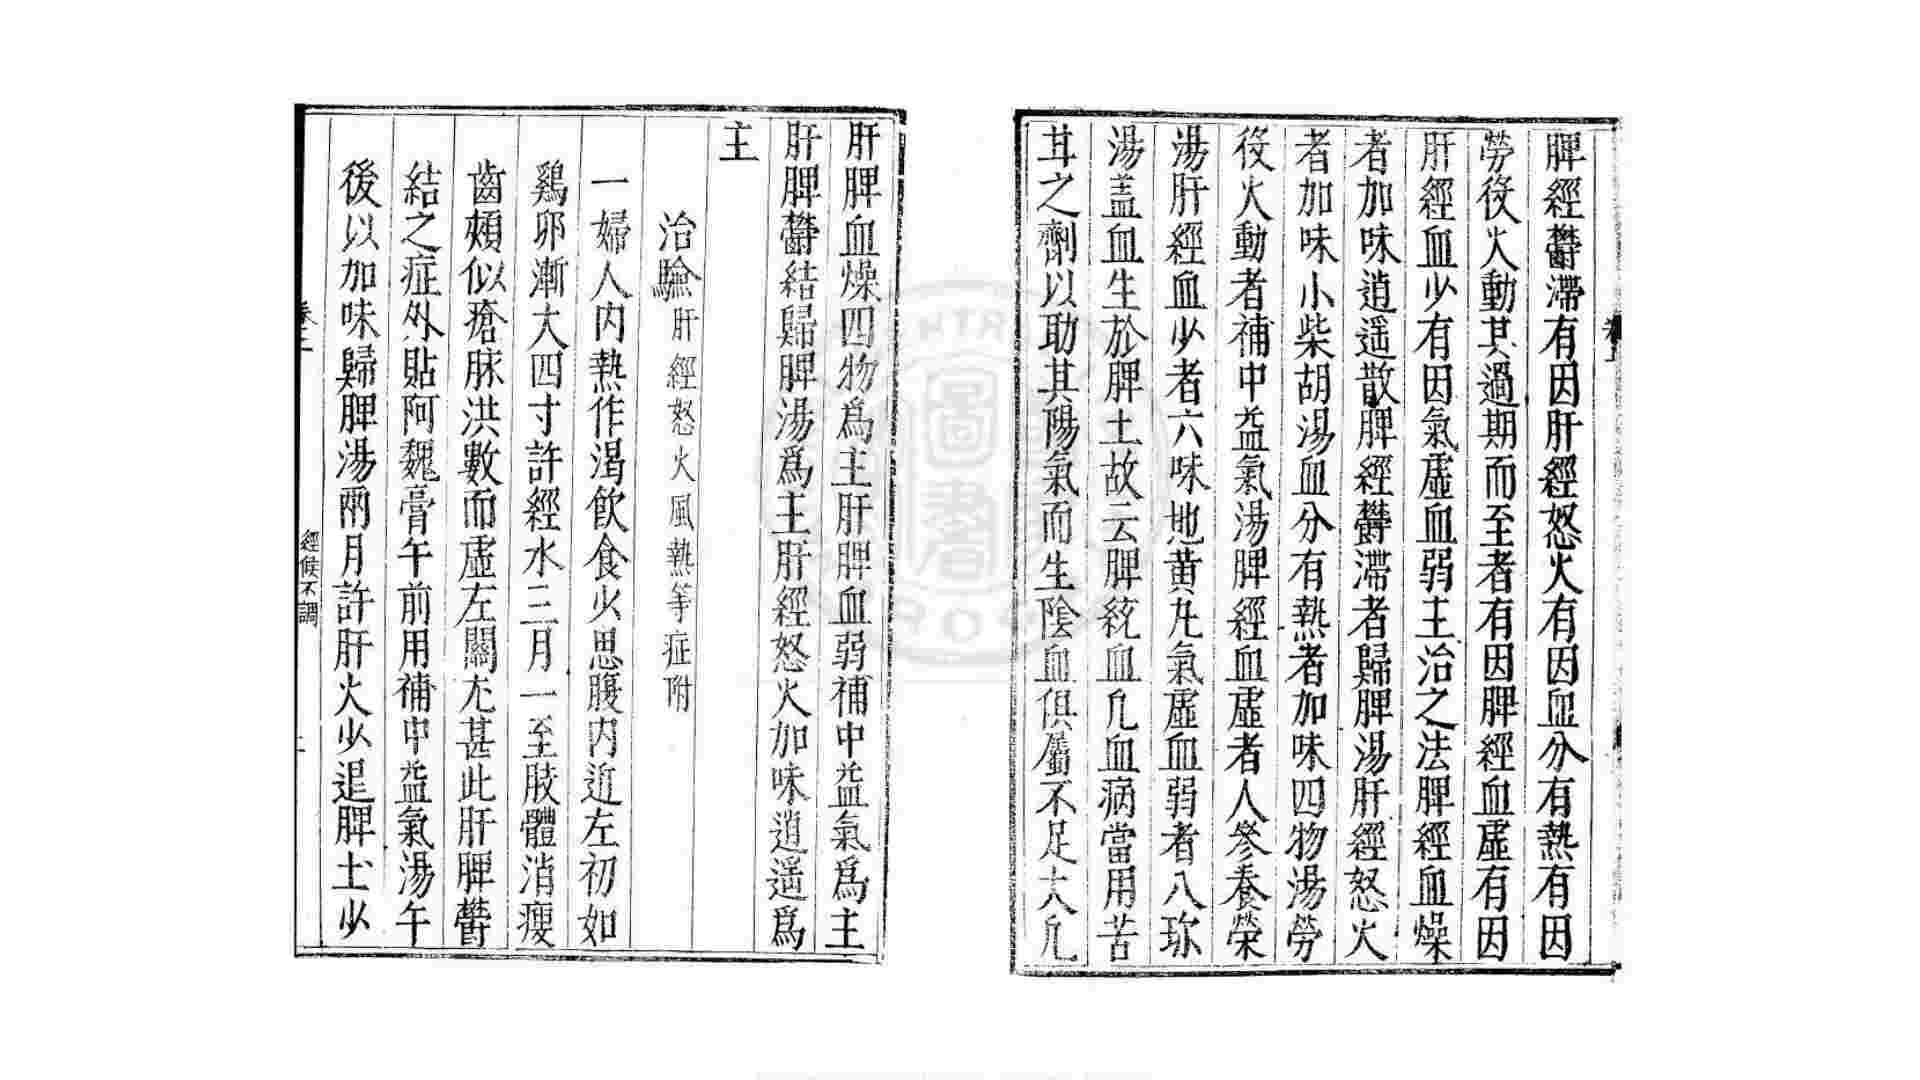 脾經鬱滯有因肝經怒火有因血分有熱有因
勞役火動其過期而至者有因脾經血虛有因
肝經血少有因氣虛血弱主治之法脾經血燥
者加味逍遥散脾經鬱滯者歸脾湯肝經怒火
者加味小柴胡湯血分有熱者加味四物湯勞
役火動者補中益氣湯脾經血虛者人參養榮
湯肝經血少者六味地黄丸氣虛血弱者八珎
湯盖血生於脾土故云脾統血凢血病當用苦
甘之劑以助其陽氣而生陰血俱屬不足大凢
肝脾血燥四物爲主肝脾血弱補中益氣爲主
肝脾鬱結歸脾湯爲主肝經怒火加味逍遥爲
主
治驗肝經怒火風熱等症附
一婦人内熱作渴飲食少思腹内近左初如
鷄卵漸大四寸許經水三月一至肢體消瘦
齒頰似瘡脉洪數而虛左關尤甚此肝脾鬱
結之症外貼阿魏膏午前用補中益氣湯午
後以加味歸脾湯兩月許肝火少退脾土少
經候不調